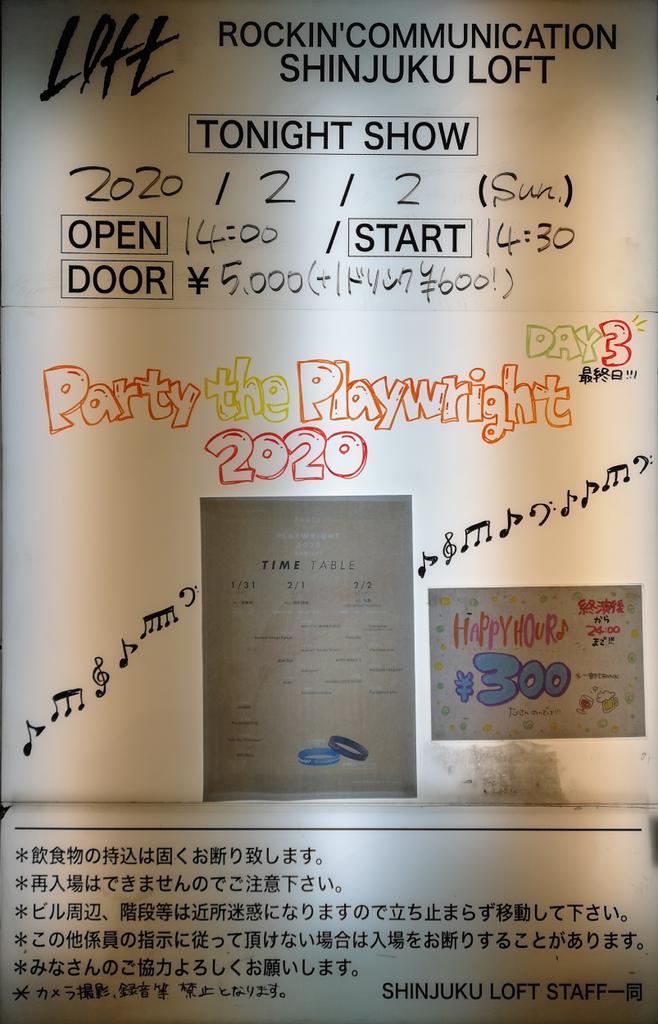 Loft
ROCKIN'COMMUNICATION
SHINJUKU LOFT
TONIGHT SHOW
2020 / 2 / 2 (Sun.)
OPEN 14:00 / START 14:30
DOOR ¥ 5,000(+1ドリンク¥600!)
DAY3
最終日!!!
Party the Playwright
2020
PLAYWRIGHT
2020
TIME TABLE
1/31 2/1 2/2
HAPPY HOUR♪
終演後
から
24:00
まで!!!
¥300
*飲食物の持込は固くお断り致します。
*再入場はできませんのでご注意下さい。
*ビル周辺、階段等は近所迷惑になりますので立ち止まらず移動して下さい。
*この他係員の指示に従って頂けない場合は入場をお断りすることがあります。
*みなさんのご協力よろしくお願いします。
*カメラ撮影、録音等 禁止となります。
SHINJUKU LOFT STAFF一同